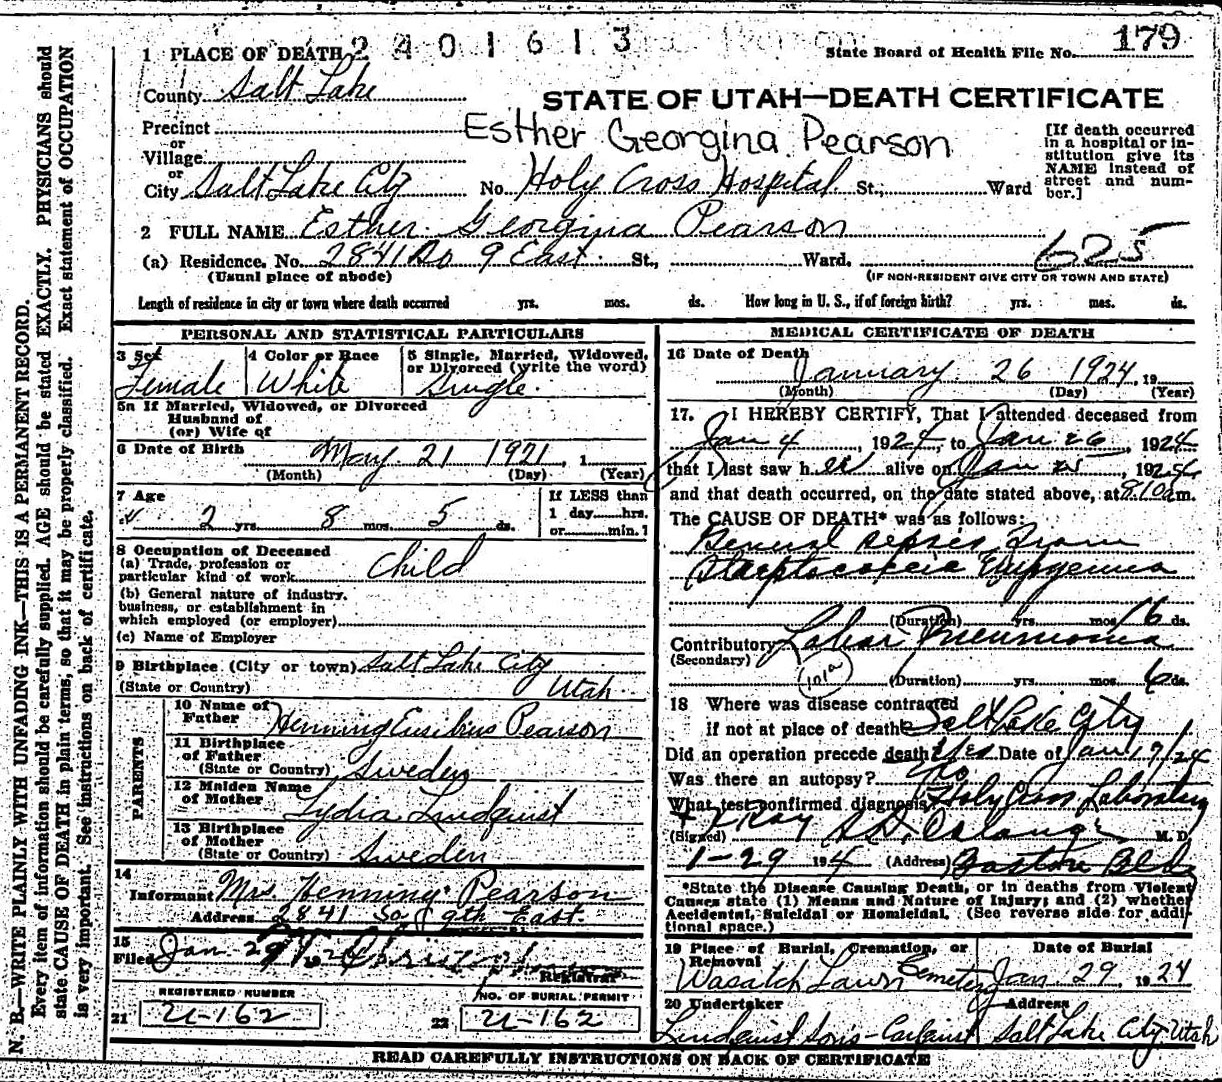 2401613
State Board of Health File No. 179
1 PLACE OF DEATH
County Salt Lake
STATE OF UTAH—DEATH CERTIFICATE
Precinct
or
Village
Esther Georgina Pearson
[If death occurred in a hospital or institution give its NAME instead of street and number.]
or
City Salt Lake City No. Holy Cross Hospital St.; Ward
2 FULL NAME Esther Georgina Pearson
(a) Residence, No. 2841 So 9 East St., Ward. 625
(Usual place of abode) (IF NON-RESIDENT GIVE CITY OR TOWN AND STATE)
Length of residence in city or town where death occurred yrs. mos. ds. How long in U. S., if of foreign birth? yrs. mos. ds.
PERSONAL AND STATISTICAL PARTICULARS
3 Sex Female
4 Color or Race White
5 Single, Married, Widowed, or Divorced (write the word) Single.
5a If Married, Widowed, or Divorced
Husband of
(or) Wife of
6 Date of Birth May 21 1921, 1
(Month) (Day) (Year)
7 Age 2 yrs. 8 mos. 5 ds.
If LESS than
1 day hrs.
or min.?
8 Occupation of Deceased
(a) Trade, profession or
particular kind of work Child
(b) General nature of industry,
business, or establishment in
which employed (or employer)
(c) Name of Employer
9 Birthplace (City or town) Salt Lake City
(State or Country) Utah
PARENTS
10 Name of
Father Henning Eusibius Pearson
11 Birthplace
of Father
(State or Country) Sweden
12 Maiden Name
of Mother Lydia Lindquist
13 Birthplace
of Mother
(State or Country) Sweden
14
Informant Mrs. Henning Pearson
Address 2841 So 9th East
15
Filed Jan. 29
Registrar
REGISTERED NUMBER
21 U-162
NO. OF BURIAL PERMIT
22 U-162
MEDICAL CERTIFICATE OF DEATH
16 Date of Death
January 26 1924, 19
(Month) (Day) (Year)
17. I HEREBY CERTIFY, That I attended deceased from
Jan 4, 1924, to Jan 26, 1924
that I last saw her alive on Jan 25, 1924
and that death occurred, on the date stated above, at 8.10 a m.
The CAUSE OF DEATH* was as follows:
General sepsis from
Streptococcic Empyema
(Duration) yrs. mos. 16 ds.
Contributory Lobar Pneumonia
(Secondary)
101a (Duration) yrs. mos. 6 ds.
18 Where was disease contracted
if not at place of death? Salt Lake City
Did an operation precede death? Yes Date of Jan 19/24
Was there an autopsy? No
What test confirmed diagnosis? Holy Cross Laboratory
+ X Ray
(Signed) M. D.
1-29 1924 (Address) Boston Bldg
*State the Disease Causing Death, or in deaths from Violent
Causes state (1) Means and Nature of Injury; and (2) whether
Accidental, Suicidal or Homicidal. (See reverse side for additional space.)
19 Place of Burial, Cremation, or Removal Wasatch Lawn Cemetery
Date of Burial Jan 29, 1924
20 Undertaker Lindquist Sons-Carlquist
Address Salt Lake City, Utah
READ CAREFULLY INSTRUCTIONS ON BACK OF CERTIFICATE
N. B.—WRITE PLAINLY WITH UNFADING INK—THIS IS A PERMANENT RECORD.
Every item of information should be carefully supplied. AGE should be stated EXACTLY. PHYSICIANS should
state CAUSE OF DEATH in plain terms, so that it may be properly classified. Exact statement of OCCUPATION
is very important. See instructions on back of certificate.